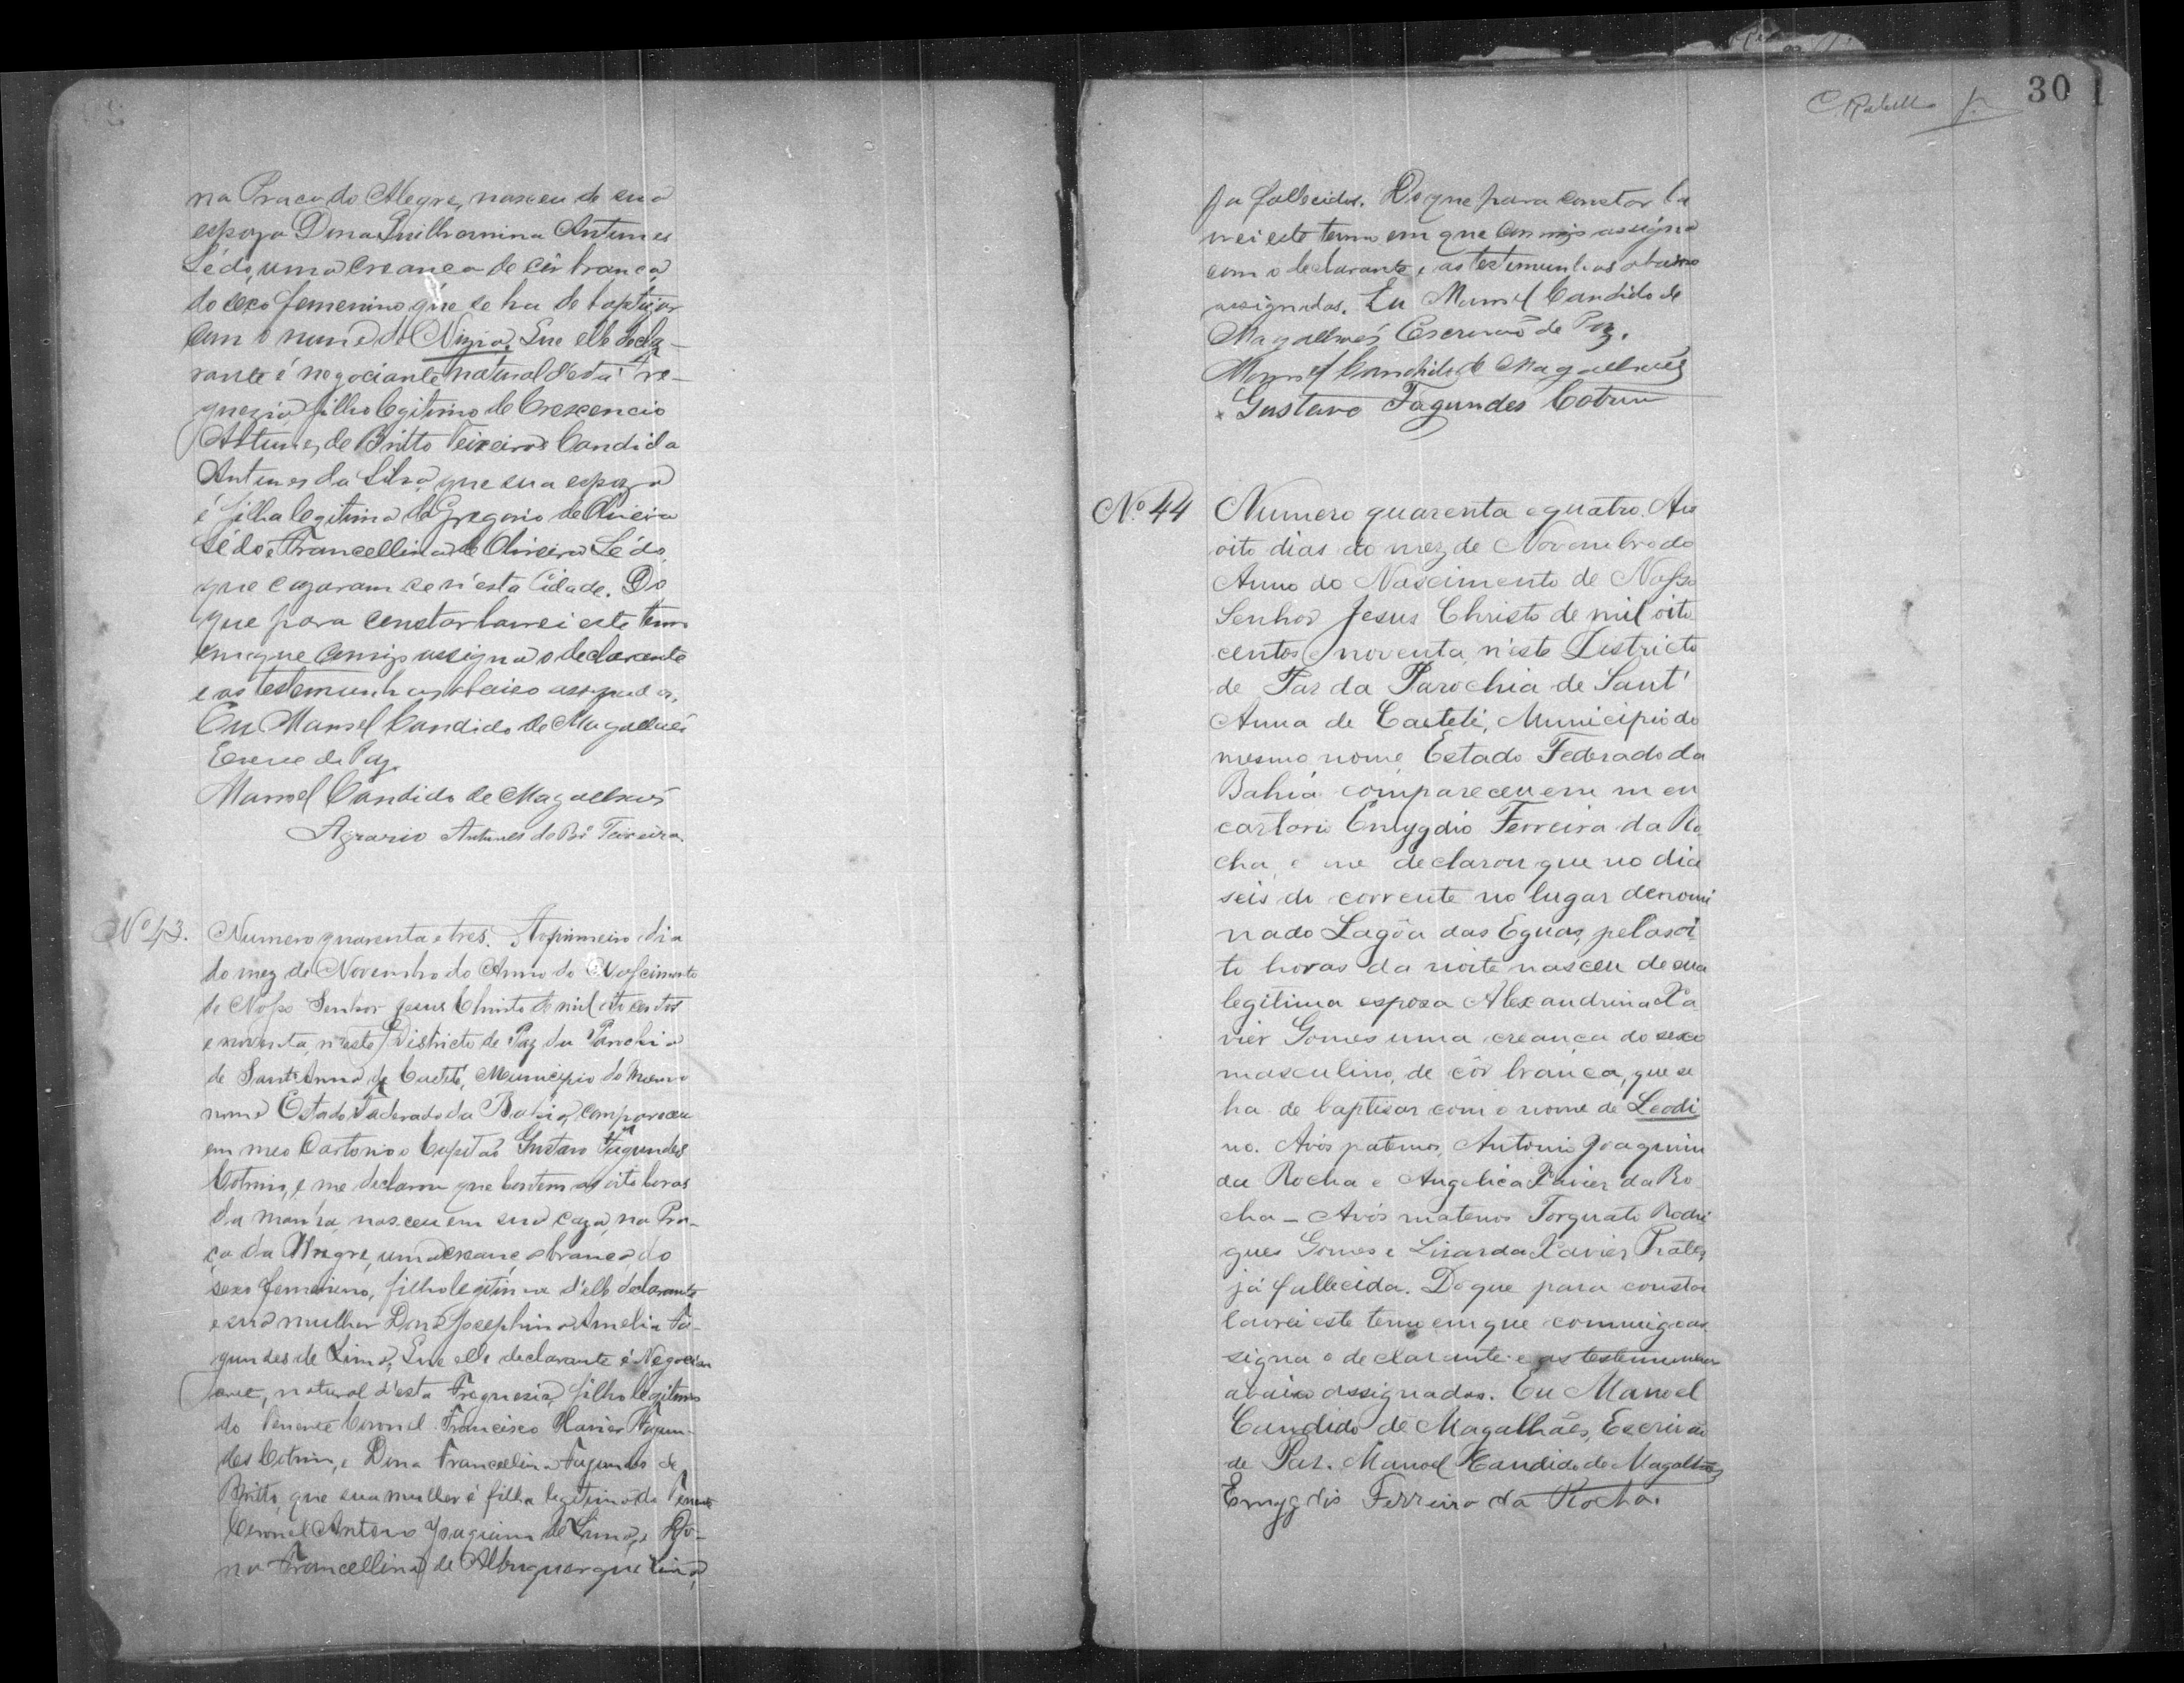 na Praça do Alegre, nasceu de sua
espoza Dona Guilhermina Antunes
Lédo, uma creança de côr branca
do sexo femenino que se ha de baptizar
com o nome de Nizia. Que elle decla-
rante é negociante natural d'esta Fre-
guezia filho legitimo de Crescencio
Antunes de Britto Teixeira e Candida
Antunes da Silva, que sua espoza
é filha legitima de Gregorio de Oliveira
Lédo e Francellina de Oliveira Lédo,
que cazaram se n'esta Cidade. Do
que para constar lavrei este termo
em que comigo assigna o declarante
e as testemunhas abaixo assignadas.
Eu Manoel Candido de Magalhães
Escrvº de Paz.
Manoel Candido de Magalhães
Agrario Antunes de Brº Teixeira.
Nº 43. Numero quarenta e tres. Ao primeiro dia
do mez de Novembro do Anno do Nascimento
de Nosso Senhor Jesus Christo de mil oito centos
e noventa, n'este Districto de Paz da Parochia
de Sant'Anna de Caetité, Municipio do mesmo
nome Estado Federado da Bahia, compareceu
em meo Cartorio o Capitão Gustavo Fagundes
Cotrim, e me declarou que hontem as oito horas
da manhã nasceu em sua caza, na Pra-
ça do Alegre, uma creança branca, do
sexo femenino, filha legitima d'elle declarante
e sua mulher Dona Josephina Amelia Fa-
gundes de Lima. Que elle declarante é Negocian
te, natural d'esta Freguesia, filho legitimo
do Tenente Coronel Francisco Xavier Fagun-
des Cotrim, e Dona Francellina Fagundes de
Britto, que sua mulher é filha legitima do Tenente
Coronel Antonio Joaquim de Lima, e Do-
na Francellina de Albuquerque Lima,
C. Rabello Jr. 30
ja fallecidos. Do que para constar la
vrei este termo em que comigo assigna
com o declarante e as testemunhas abaixo
assignadas. Eu Manoel Candido de
Magalhães Escrivão de Paz.
Manoel Candido de Magalhães
Gustavo Fagundes Cotrim
Nº 44 Numero quarenta e quatro. Aos
oito dias do mez de Novembro do
Anno do Nascimento de Nosso
Senhor Jesus Christo de mil oito
centos e noventa, n'este Districto
de Paz da Parochia de Sant'
Anna de Caeteté, Municipio do
mesmo nome Estado Federado da
Bahia compareceu em meu
cartorio Emygdio Ferreira da Ro
cha, e me declarou que no dia
seis do corrente no lugar denomi
nado Lagôa das Eguas, pelas oi
to horas da noite nasceu de sua
legitima espoza Alexandrina Xa
vier Gomes uma creança do sexo
masculino, de côr branca, que se
ha de baptisar com o nome de Leodi
no. Avós paternos, Antonio Joaquim
da Rocha e Angelica Xavier da Ro
cha - Avós maternos Torquato Rodri
gues Gomes e Lisarda Xavier Prates,
já fallecida. Do que para constar
lavrei este termo em que commigo as
signa o declarante e as testemunhas
abaixo assignadas. Eu Manoel
Candido de Magalhães, Escrivão
de Paz. Manoel Candido de Magalhães
Emygdio Ferreira da Rocha.